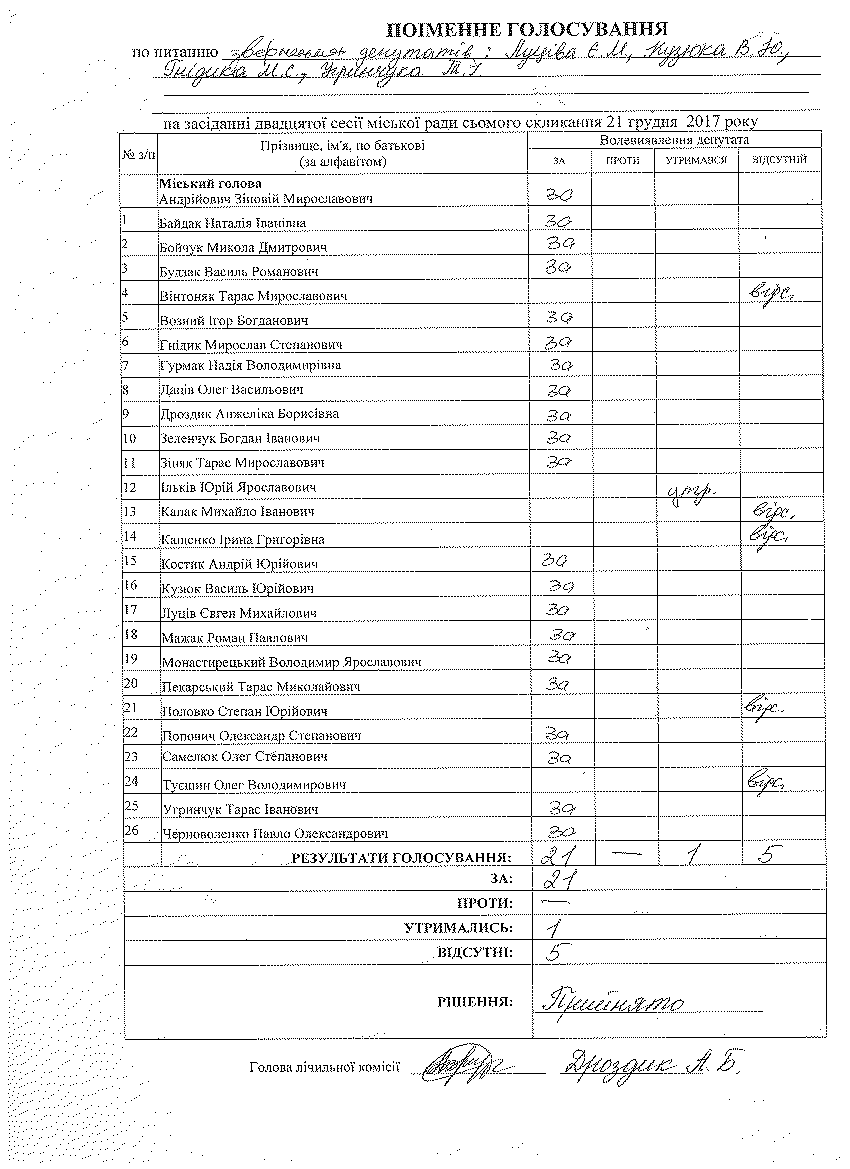 ПОІМЕННЕ ГОЛОСУВАННЯ
по питанню звернення депутатів: Луціва Є.М., Кузюка В.Ю.,
Гнідика М.С., Угринчука Т.І
на засіданні двадцятої сесії міської ради сьомого скликання 21 грудня 2017 року
№ з/п Прізвище, ім'я, по батькові Волевиявлення депутата
(за алфавітом) ЗА ПРОТИ УТРИМАВСЯ ВІДСУТНІЙ
Міський голова
Андрійович Зіновій Мирославович за
1 Байдак Наталія Іванівна за
2 Бойчук Микола Дмитрович за
3 Будзак Василь Романович за
4 Вінтоняк Тарас Мирославович відс.
5 Возний Ігор Богданович за
6 Гнідик Мирослав Степанович за
7 Гурмак Надія Володимирівна за
8 Даців Олег Васильович за
9 Дроздик Анжеліка Борисівна за
10 Зеленчук Богдан Іванович за
11 Зіняк Тарас Мирославович за
12 Ільків Юрій Ярославович утр.
13 Капак Михайло Іванович відс.
14 Кащенко Ірина Григорівна відс.
15 Костик Андрій Юрійович за
16 Кузюк Василь Юрійович за
17 Луців Євген Михайлович за
18 Мажак Роман Павлович за
19 Монастирецький Володимир Ярославович за
20 Пекарський Тарас Миколайович за
21 Половко Степан Юрійович відс.
22 Попович Олександр Степанович за
23 Самелюк Олег Степанович за
24 Туєшин Олег Володимирович відс.
25 Угринчук Тарас Іванович за
26 Черноволенко Павло Олександрович за
РЕЗУЛЬТАТИ ГОЛОСУВАННЯ: 21 — 1 5
ЗА: 21
ПРОТИ: —
УТРИМАЛИСЬ: 1
ВІДСУТНІ: 5
РІШЕННЯ: Прийнято
Голова лічильної комісії Дроздик А.Б.